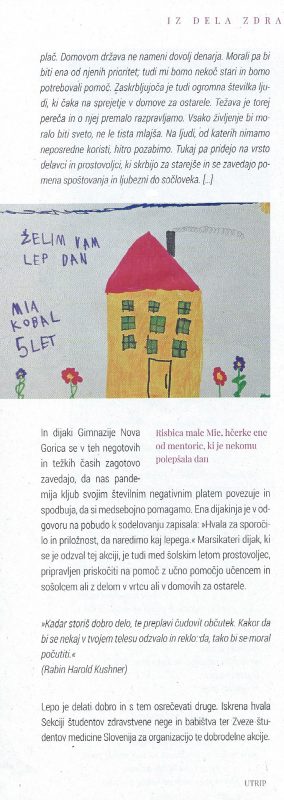 IZ DELA ZDRA
plač. Domovom država ne nameni dovolj denarja. Morali pa bi
biti ena od njenih prioritet; tudi mi bomo nekoč stari in bomo
potrebovali pomoč. Zaskrbljujoča je tudi ogromna številka lju-
di, ki čaka na sprejetje v domove za ostarele. Težava je torej
pereča in o njej premalo razpravljamo. Vsako življenje bi mo-
ralo biti sveto, ne le tista mlajša. Na ljudi, od katerih nimamo
neposredne koristi, hitro pozabimo. Tukaj pa pridejo na vrsto
delavci in prostovoljci, ki skrbijo za starejše in se zavedajo po-
mena spoštovanja in ljubezni do sočloveka. […]
ŽELIM VAM
LEP DAN
MIA
KOBAL
5 LET
Risbica male Mie, hčerke ene
od mentoric, ki je nekomu
polepšala dan
In dijaki Gimnazije Nova
Gorica se v teh negotovih
in težkih časih zagotovo
zavedajo, da nas pande-
mija kljub svojim številnim negativnim platem povezuje in
spodbuja, da si medsebojno pomagamo. Ena dijakinja je v od-
govoru na pobudo k sodelovanju zapisala: »Hvala za sporoči-
lo in priložnost, da naredimo kaj lepega.« Marsikateri dijak, ki
se je odzval tej akciji, je tudi med šolskim letom prostovoljec,
pripravljen priskočiti na pomoč z učno pomočjo učencem in
sošolcem ali z delom v vrtcu ali v domovih za ostarele.
»Kadar storiš dobro delo, te preplavi čudovit občutek. Kakor da
bi se nekaj v tvojem telesu odzvalo in reklo: da, tako bi se moral
počutiti.«
(Rabin Harold Kushner)
Lepo je delati dobro in s tem osrečevati druge. Iskrena hvala
Sekciji študentov zdravstvene nege in babištva ter Zveze štu-
dentov medicine Slovenija za organizacijo te dobrodelne akcije.
UTRIP